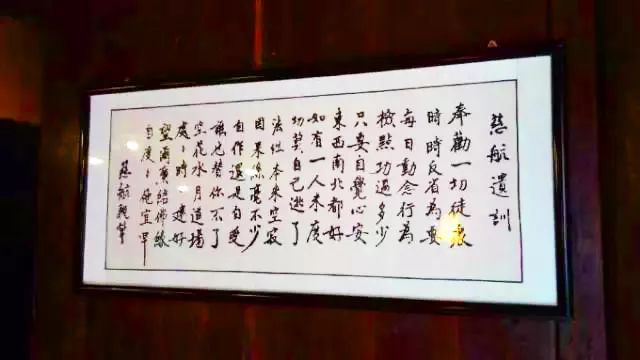 慈航遺訓
奉勸一切徒眾
時時反省為要
每日動念行為
檢點功過多少
只要自覺心安
東西南北都好
如有一人未度
切莫自己逃了
法性本來空寂
因果絲毫不少
自作還是自受
誰也替你不了
空花水月道場
處々時々建好
望爾廣結佛緣
自度々他宜早
慈航親筆